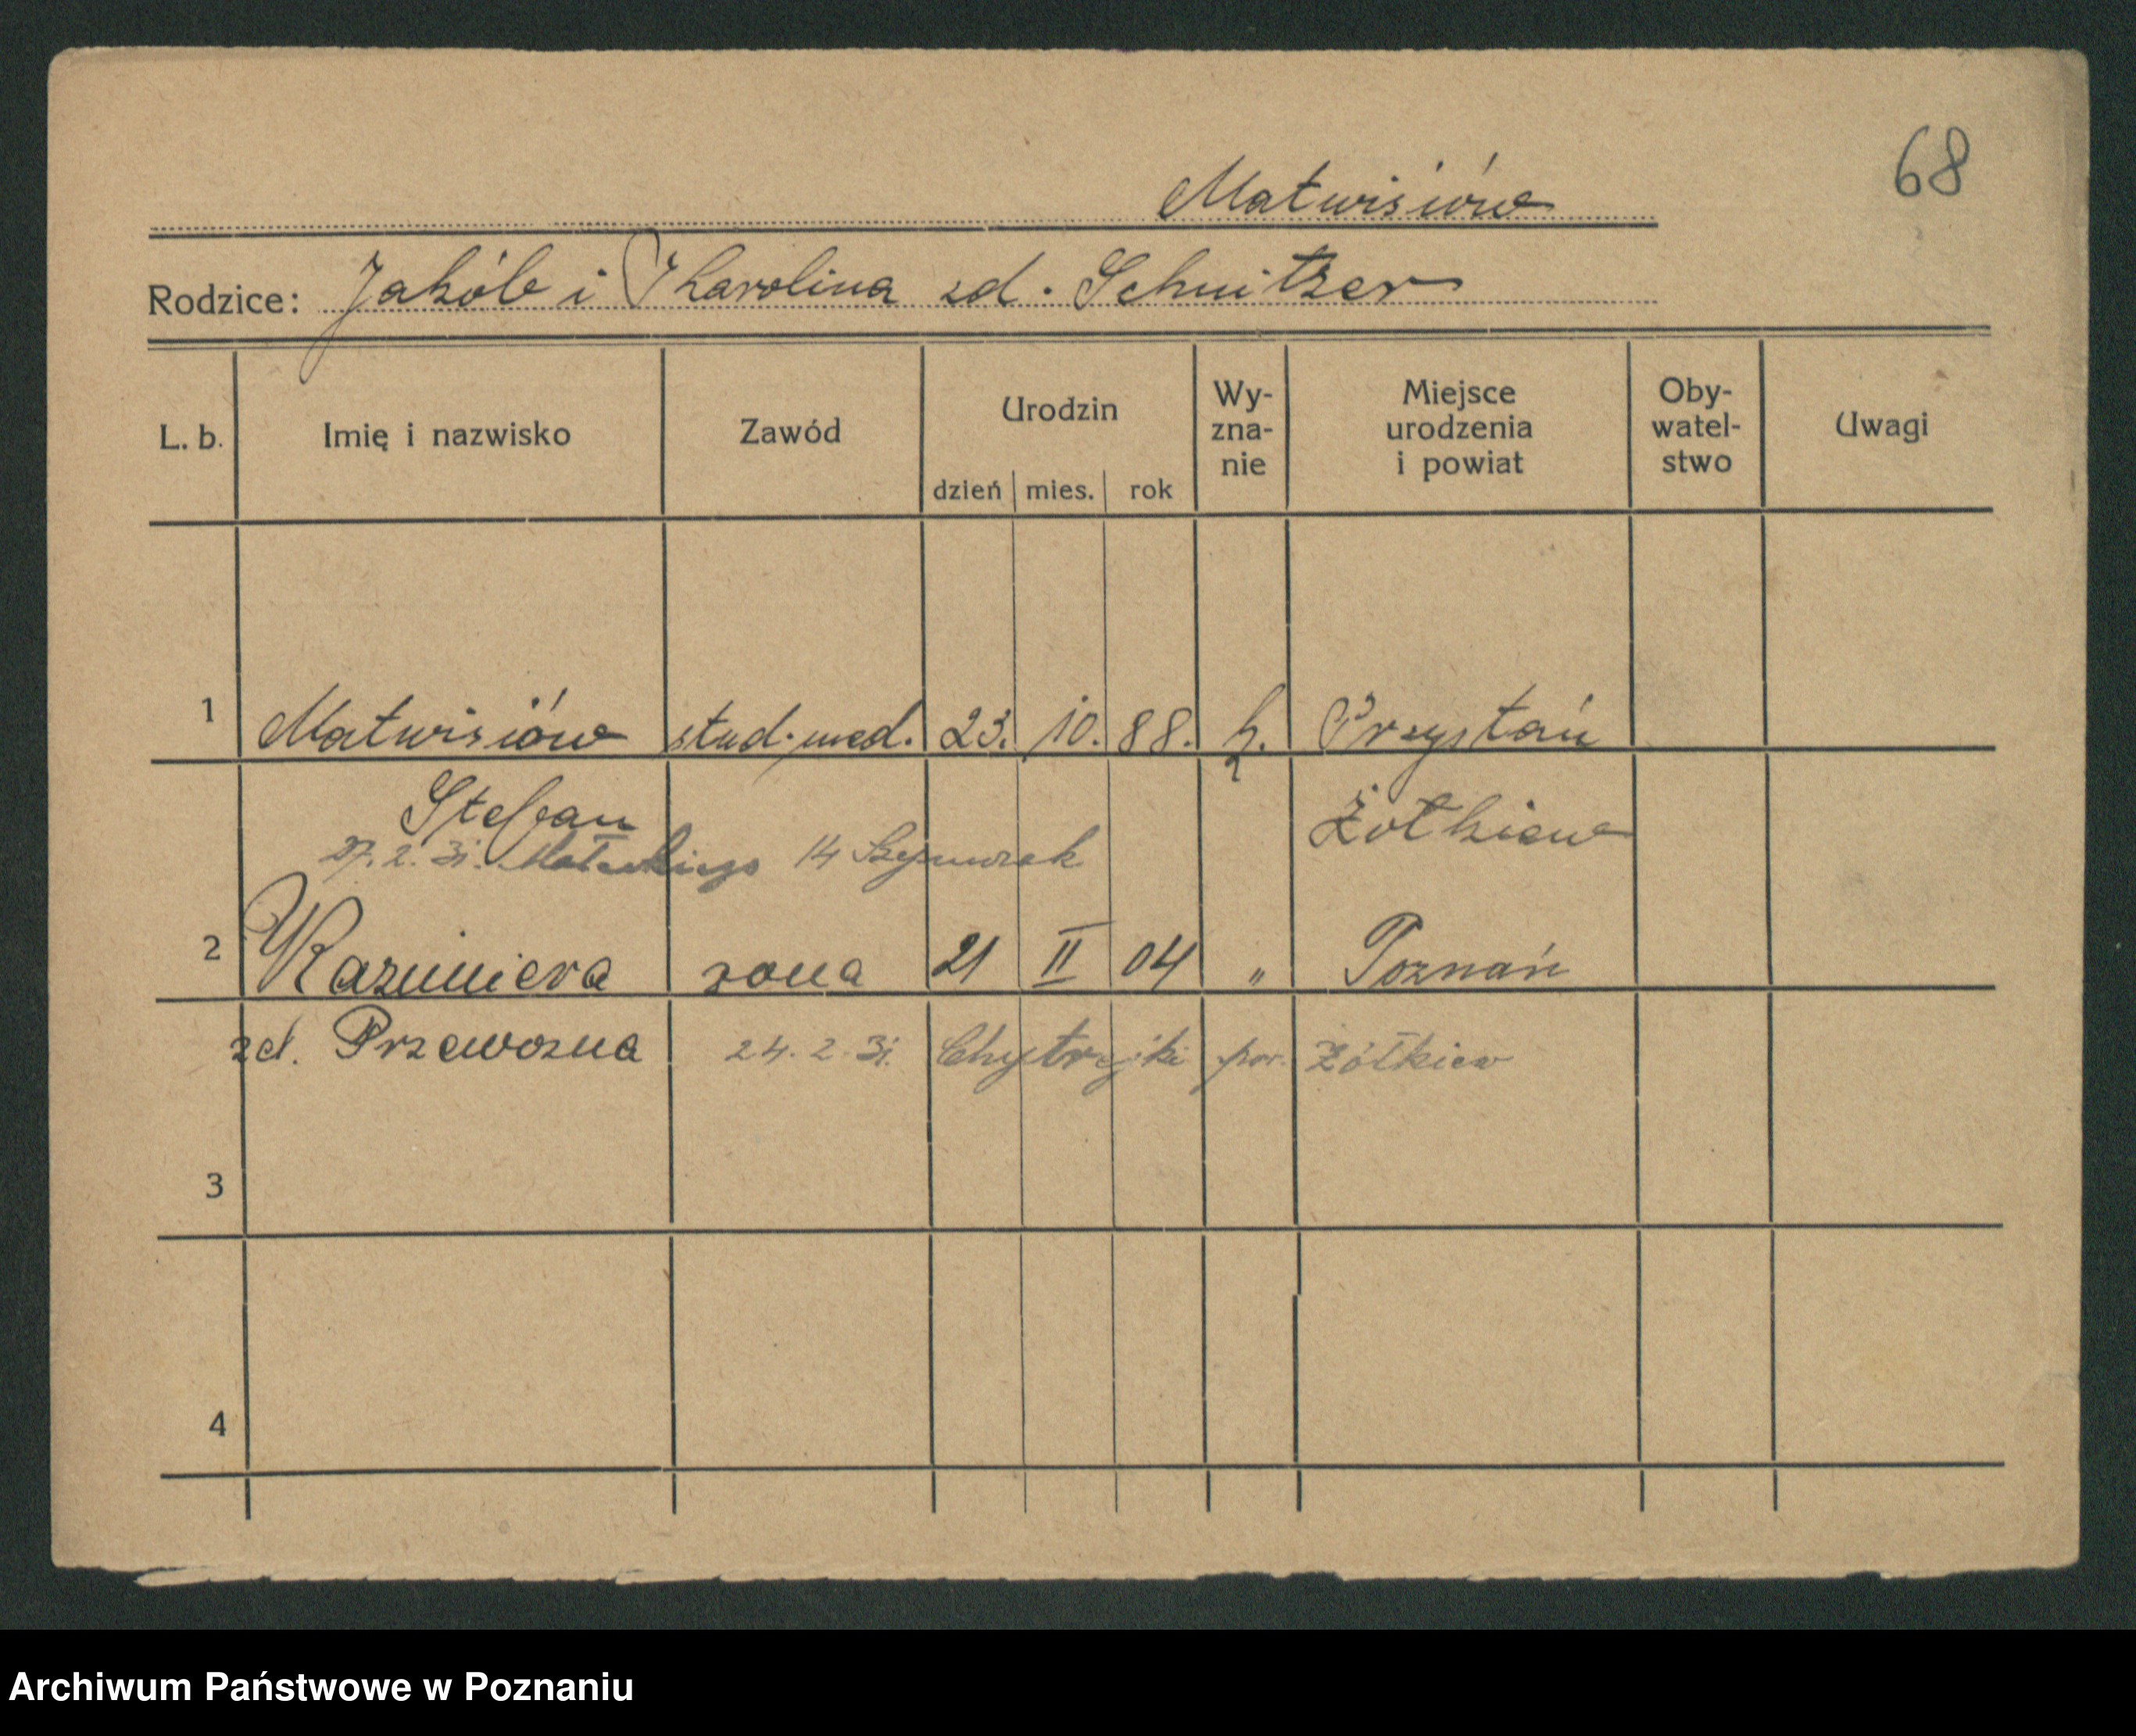 68
Matwisiów
Rodzice: Jakób i Karolina zd. Schnitzer
L. b. Imię i nazwisko Zawód Urodzin dzień mies. rok Wy-zna-nie Miejsce urodzenia i powiat Oby-watel-stwo Uwagi
1 Matwisiów stud. med. 23. 10. 88. Przystań
Stefan Żółkiew
27. 2. 31. Małeckiego 14 Szymczak
2 Kazimiera żona 21 II 04 " Poznań
zd. Przewozna 24. 2. 31. pow. Żółkiew
3
4
Archiwum Państwowe w Poznaniu